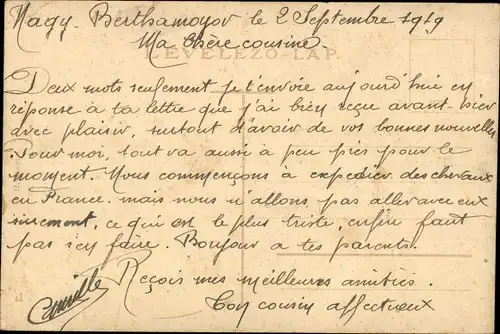 Nagy-Berthamoyov le 2 Septembre 1919
Ma Chère cousine
LEVELEZŐ-LAP.
Deux mots seulement je t'envoie aujourd'hui en
réponse à ta lettre que j'ai bien reçu avant-hier
avec plaisir, surtout d'avoir de vos bonnes nouvelles
Pour moi, tout va aussi à peu près pour le
moment. Nous commençons à expédier des chevaux
en France. mais nous n'allons pas aller avec eux
surement, ce qui est le plus triste, enfin faut
pas s'en faire. Bonjour a tes parents.
Reçois mes meilleures amitiés.
Ton cousin affectueux
Camille